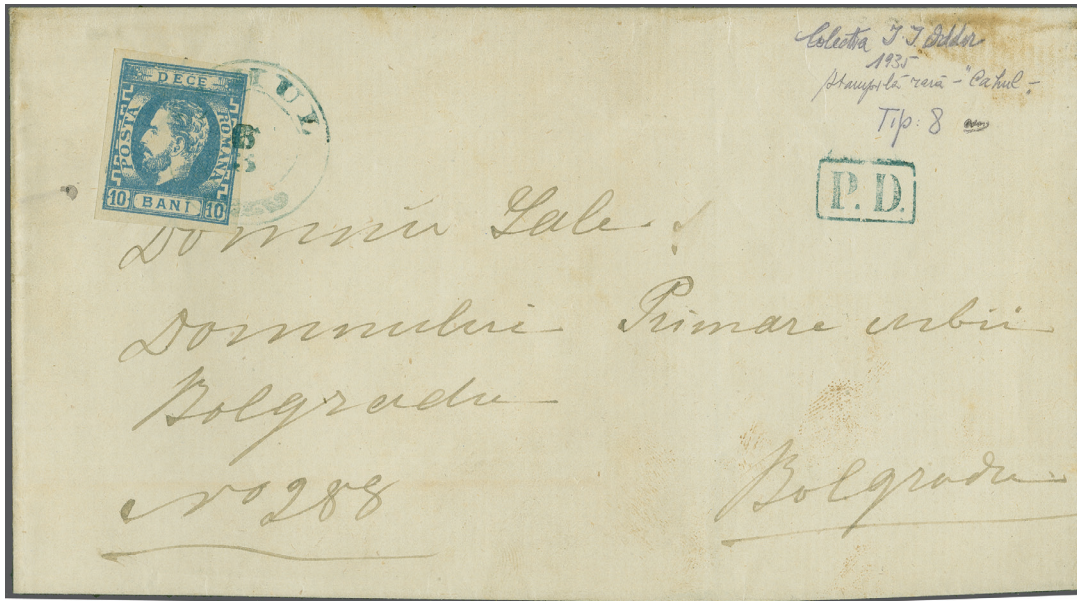 DECE
POSTA ROMANA
10 BANI 10
IUL
Colectia I. I.
1935
Stampilă rară - "Cahul"-
Tip: 8
P. D.
Domniei Sale
Domnului Primare urbii
Bolgradu
No 288
Bolgradu